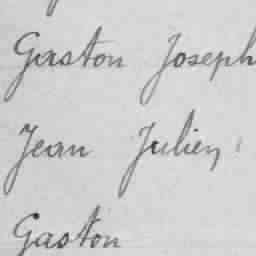 Gaston Joseph
Jean Julien
Gaston